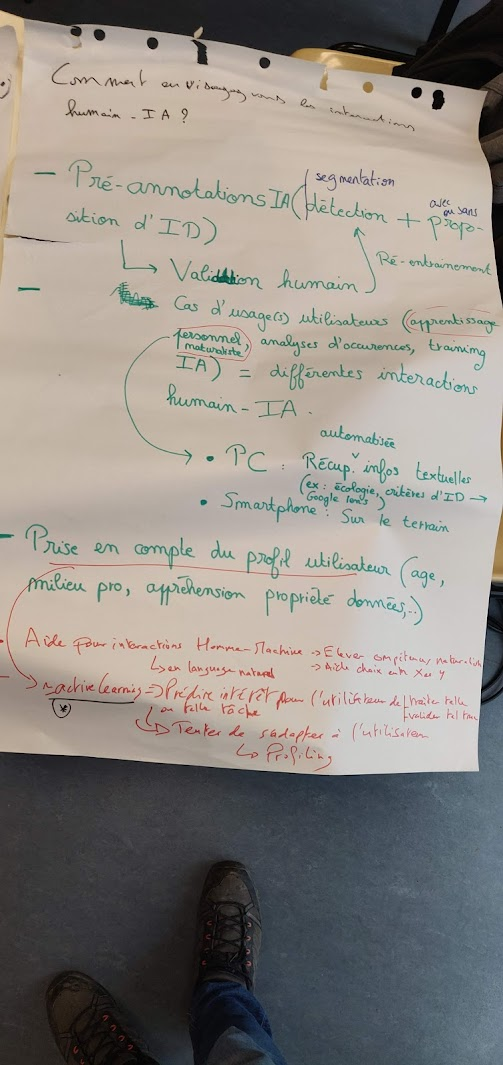 Comment envisagez vous les interactions
humain - IA ?
segmentation
avec ou sans
- Pré-annotations IA (détection + propo-
sition d'ID)
Ré-entrainement
Validation humain
- Cas d'usage(s) utilisateurs (apprentissage
personnel, analyses d'occurences, training
naturaliste
IA) = différentes interactions
humain - IA.
automatisée
• PC : Récup. infos textuelles
(ex : écologie, critères d'ID →
Google lens)
• Smartphone : Sur le terrain
- Prise en compte du profil utilisateur (age,
milieu pro, appréhension propriété données,..)
• Aide pour interactions Homme-Machine → Elever compétences naturaliste
↳ en language naturel → Aide choix entre X et Y
→ machine learning → Prédire intérêt pour l'utilisateur de traiter telle
ou telle tâche valider tel
(*)
↳ Tenter de s'adapter à l'utilisateur
↳ Profiling